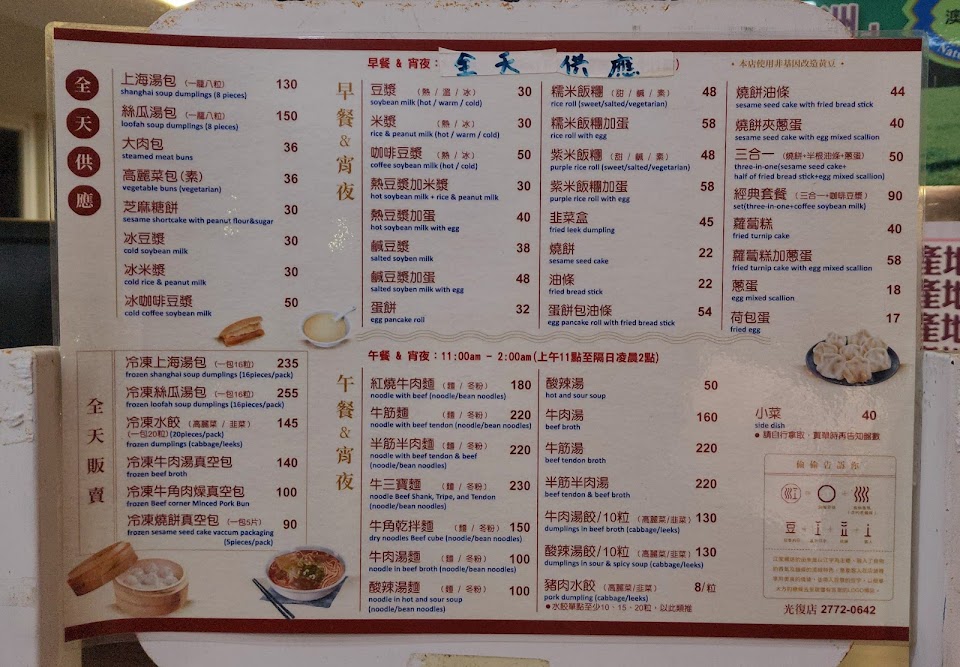 全天供應
上海湯包 (一籠八粒) 130
shanghai soup dumplings (8 pieces)
絲瓜湯包 (一籠八粒) 150
loofah soup dumplings (8 pieces)
大肉包 36
steamed meat buns
高麗菜包(素) 36
vegetable buns (vegetarian)
芝麻糖餅 30
sesame shortcake with peanut flour&sugar
冰豆漿 30
cold soybean milk
冰米漿 30
cold rice & peanut milk
冰咖啡豆漿 50
cold coffee soybean milk
早餐 & 宵夜：全天供應
早餐&宵夜
豆漿 (熱 / 溫 / 冰) 30
soybean milk (hot / warm / cold)
米漿 (熱 / 溫 / 冰) 30
rice & peanut milk (hot / warm / cold)
咖啡豆漿 (熱 / 冰) 50
coffee soybean milk (hot / cold)
熱豆漿加米漿 30
hot soybean milk + rice & peanut milk
熱豆漿加蛋 40
hot soybean milk with egg
鹹豆漿 38
salted soyben milk
鹹豆漿加蛋 48
salted soyben milk with egg
蛋餅 32
egg pancake roll
糯米飯糰 (甜 / 鹹 / 素) 48
rice roll (sweet/salted/vegetarian)
糯米飯糰加蛋 58
rice roll with egg
紫米飯糰 (甜 / 鹹 / 素) 48
purple rice roll (sweet/salted/vegetarian)
紫米飯糰加蛋 58
purple rice roll with egg
韭菜盒 45
fried leek dumpling
燒餅 22
sesame seed cake
油條 22
fried bread stick
蛋餅包油條 54
egg pancake roll with fried bread stick
• 本店使用非基因改造黃豆 •
燒餅油條 44
sesame seed cake with fried bread stick
燒餅夾蔥蛋 40
sesame seed cake with egg mixed scallion
三合一 (燒餅+半根油條+蔥蛋) 50
three-in-one(sesame seed cake+
half of fried bread stick+egg mixed scallion)
經典套餐 (三合一+咖啡豆漿) 90
set(three-in-one+coffee soybean milk)
蘿蔔糕 40
fried turnip cake
蘿蔔糕加蔥蛋 58
fried turnip cake with egg mixed scallion
蔥蛋 18
egg mixed scallion
荷包蛋 17
fried egg
全天販賣
冷凍上海湯包 (一包16粒) 235
frozen shanghai soup dumplings (16pieces/pack)
冷凍絲瓜湯包 (一包16粒) 255
frozen loofah soup dumplings (16pieces/pack)
冷凍水餃 (高麗菜 / 韭菜) 145
(一包20粒) (20pieces/pack)
frozen dumplings (cabbage/leeks)
冷凍牛肉湯真空包 140
frozen beef broth
冷凍牛角肉燥真空包 100
frozen Beef corner Minced Pork Bun
冷凍燒餅真空包 (一包5片) 90
frozen sesame seed cake vaccum packaging
(5pieces/pack)
午餐 & 宵夜：11:00am – 2:00am(上午11點至隔日凌晨2點)
午餐&宵夜
紅燒牛肉麵 (麵 / 冬粉) 180
noodle with beef (noodle/bean noodles)
牛筋麵 (麵 / 冬粉) 220
noodle with beef tendon (noodle/bean noodles)
半筋半肉麵 (麵 / 冬粉) 220
noodle with beef tendon & beef
(noodle/bean noodles)
牛三寶麵 (麵 / 冬粉) 230
noodle Beef Shank, Tripe, and Tendon
(noodle/bean noodles)
牛角乾拌麵 (麵 / 冬粉) 150
dry noodles Beef cube (noodle/bean noodles)
牛肉湯麵 (麵 / 冬粉) 100
noodle in beef broth (noodle/bean noodles)
酸辣湯麵 (麵 / 冬粉) 100
noodle in hot and sour soup
(noodle/bean noodles)
酸辣湯 50
hot and sour soup
牛肉湯 160
beef broth
牛筋湯 220
tendon broth
半筋半肉湯 220
beef tendon & beef broth
牛肉湯餃/10粒 (高麗菜/韭菜) 130
dumplings in beef broth (cabbage/leeks)
酸辣湯餃/10粒 (高麗菜/韭菜) 130
dumplings in sour & spicy soup (cabbage/leeks)
豬肉水餃 (高麗菜/韭菜) 8/粒
pork dumpling (cabbage/leeks)
• 水餃單點至少10、15、20粒，以此類推
小菜 40
side dish
• 請自行拿取，買單時再告知盤數
偷偷告訴你
光復店 2772-0642
產地
產地
產地
澳
Natu